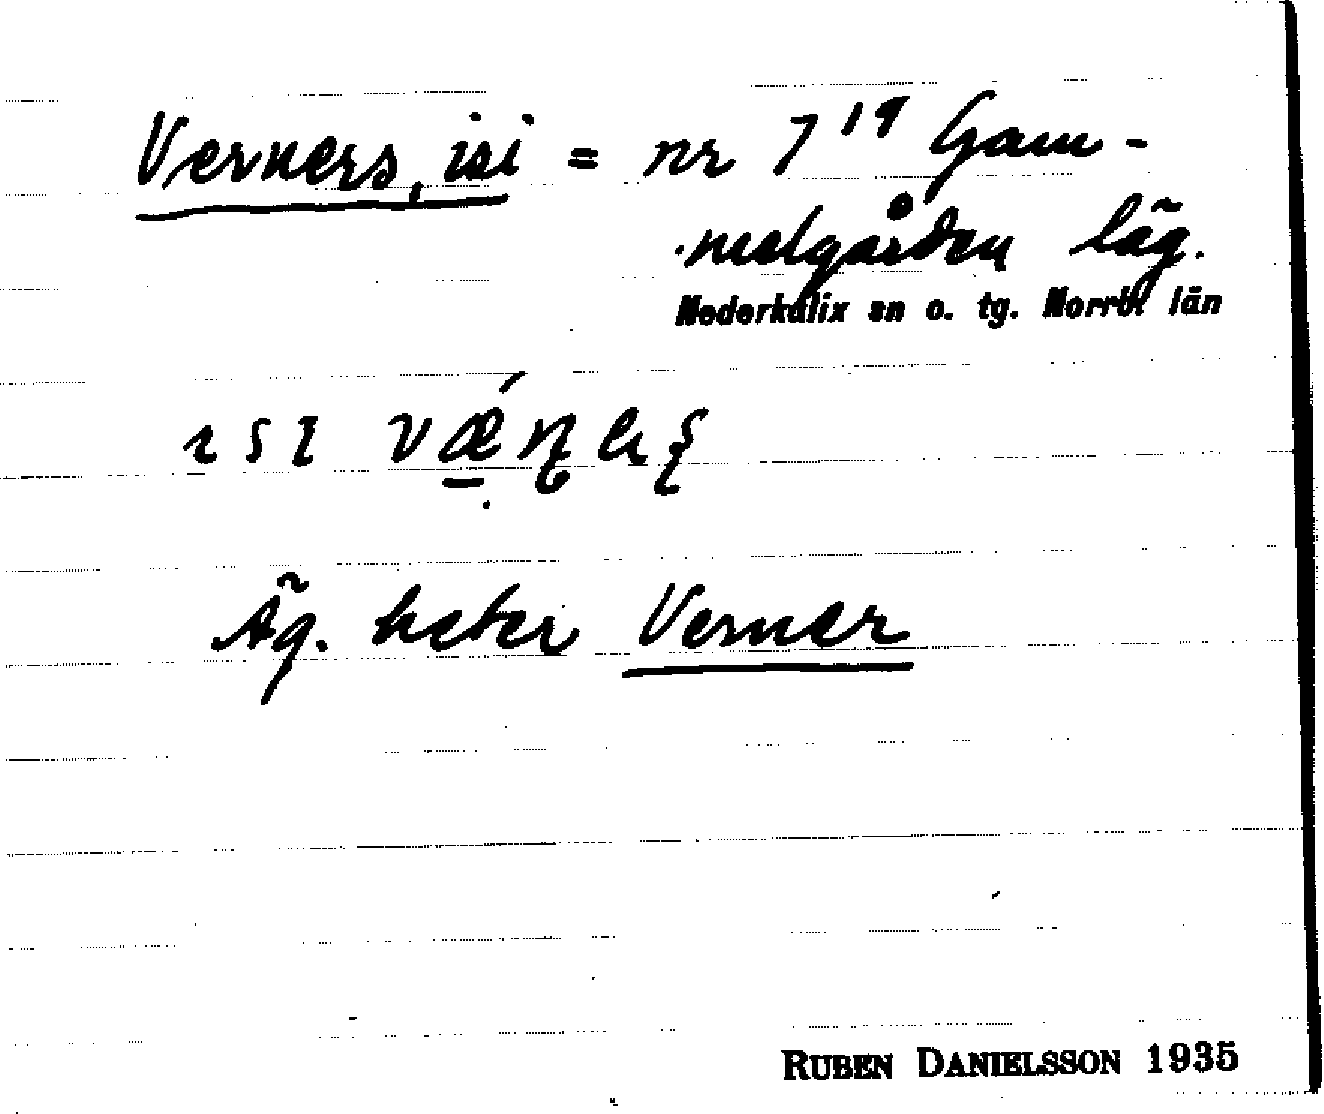 Verners, isi = nr 7¹⁹ Gam-
melgården läg.
Nederkalix sn o. tg. Norrb. län
Äg. heter Verner
RUBEN DANIELSSON 1935